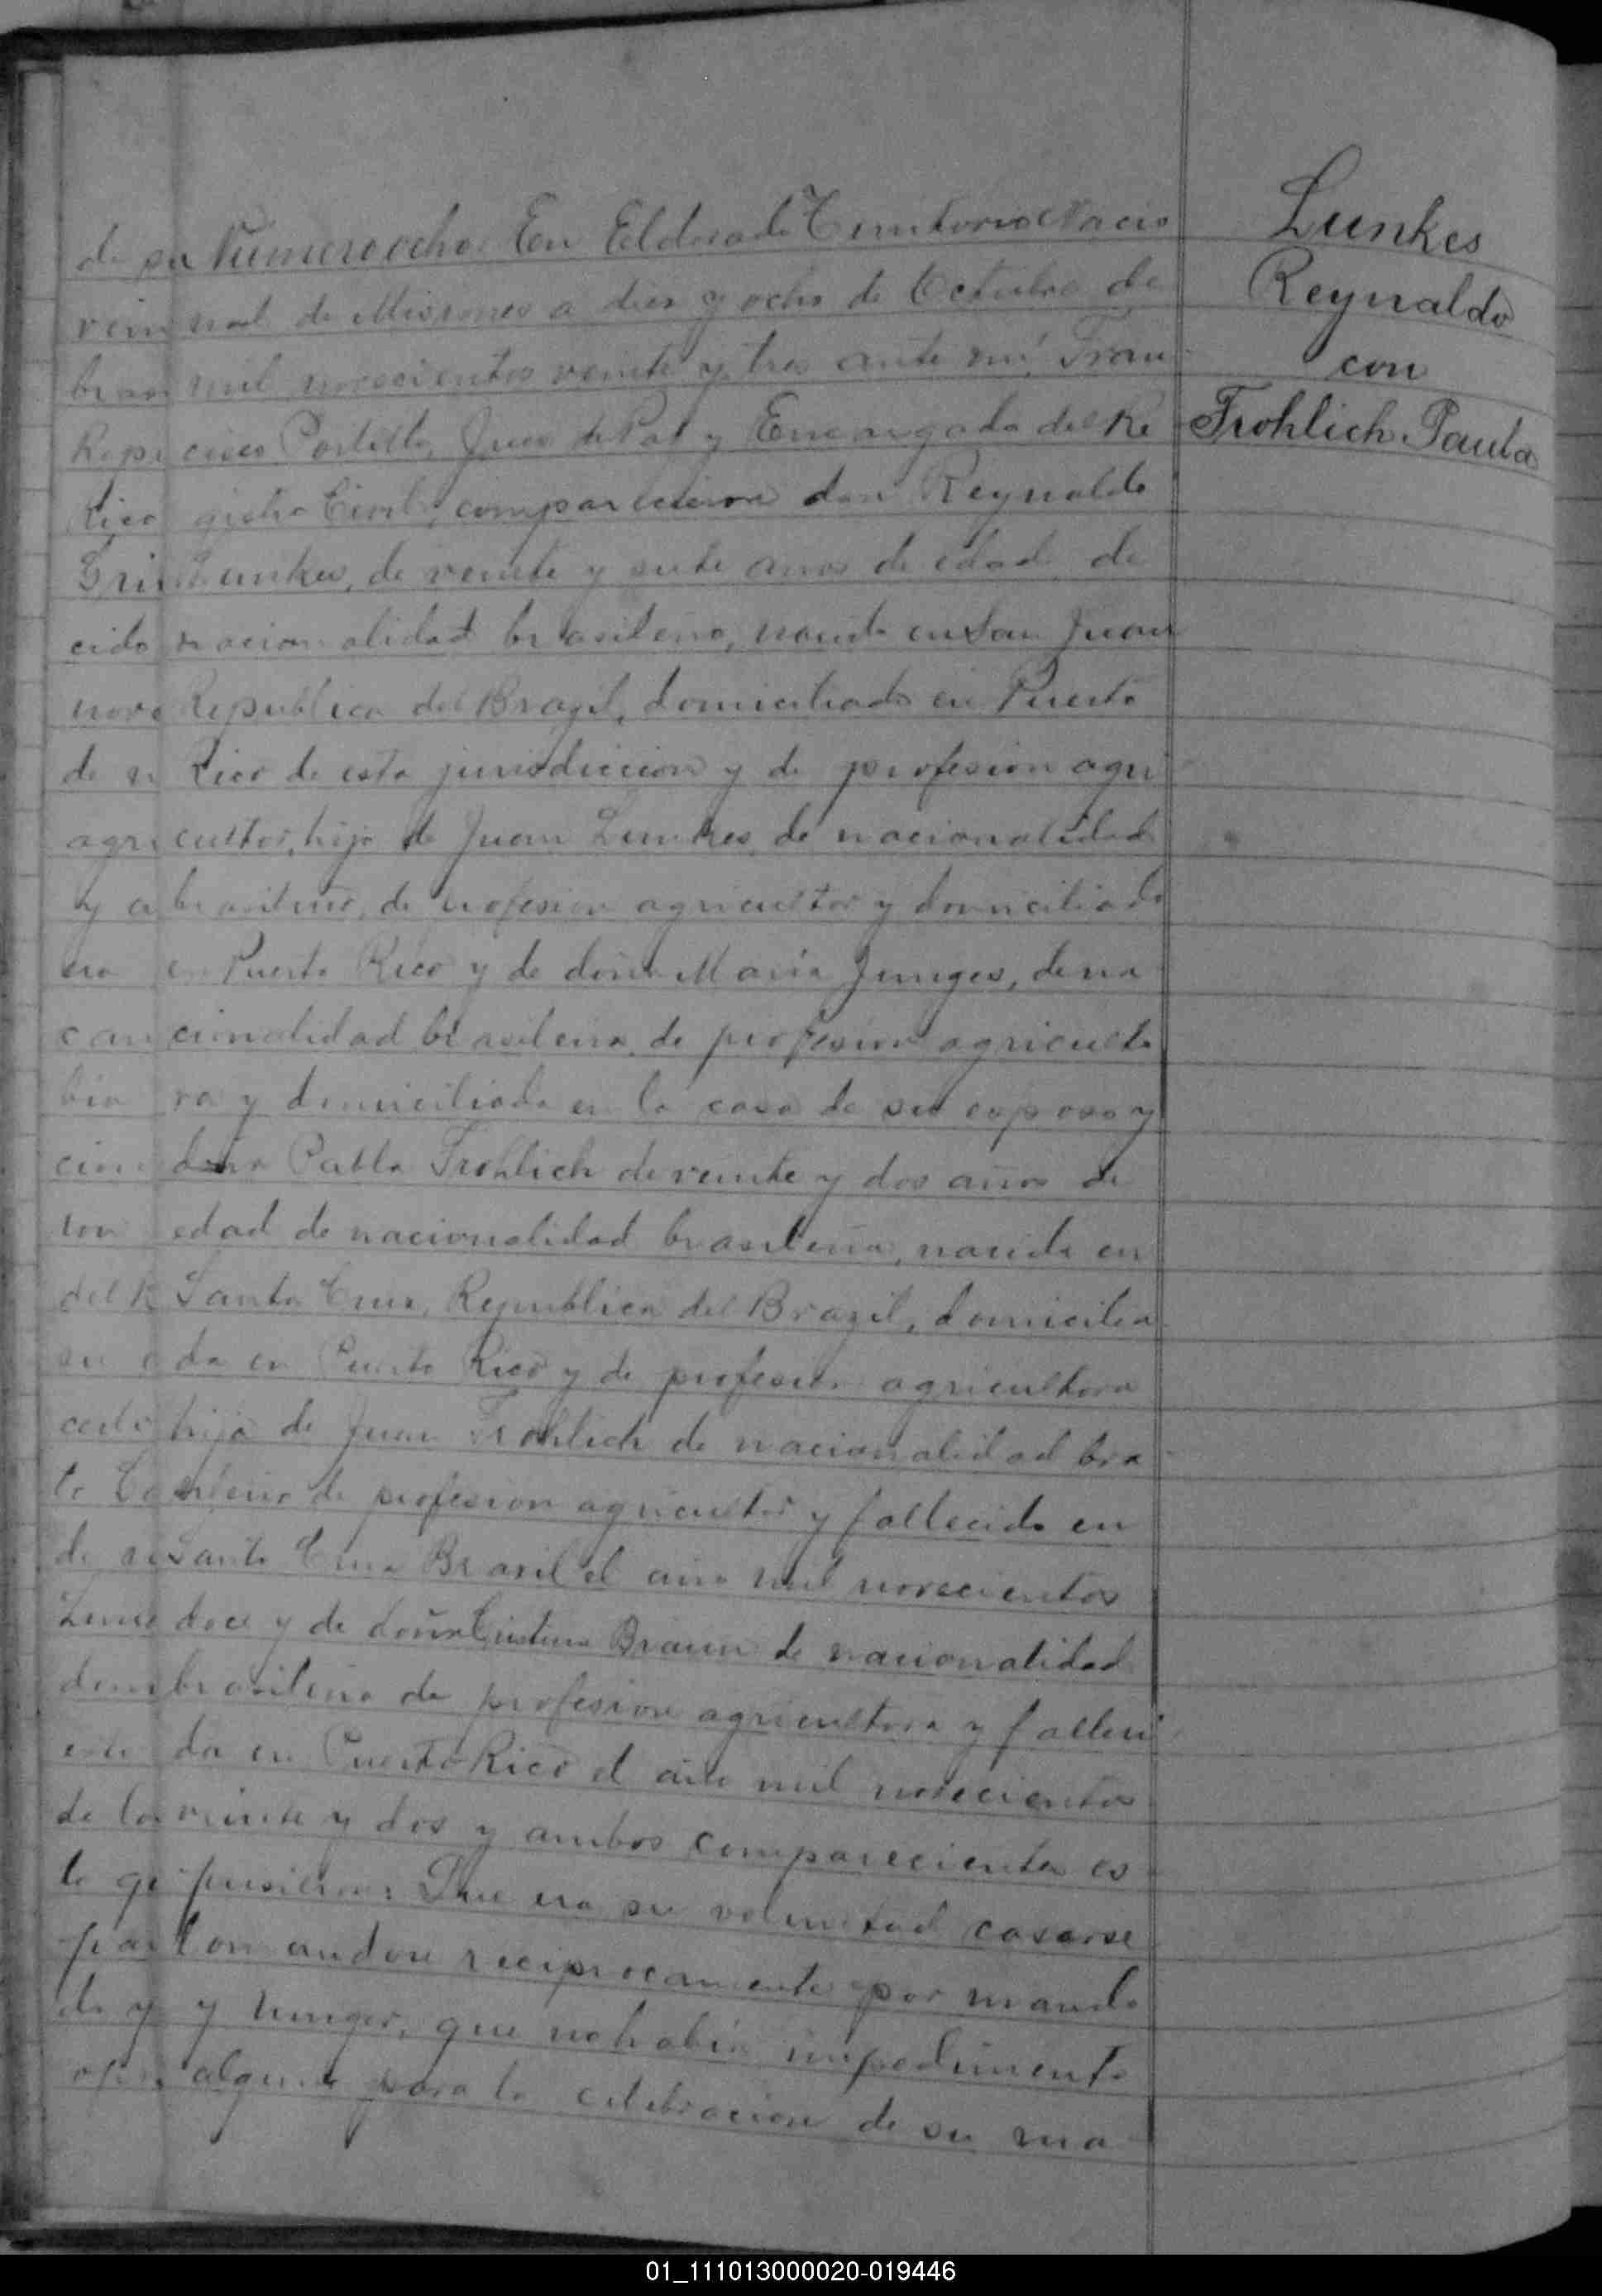 Lunkes
Reynaldo
con
Frohlich Paula
Numero ocho. En Eldorado Territorio Nacio
nal de Misiones a dies y ocho de Octubre de
mil novecientos veinte y tres ante mi, Fran
cisco Portillo, Juez de Paz y Encargado del Re
gistro Civil, comparecieron don Reynaldo
Lunkes, de veinte y siete anos de edad, de
nacionalidad brasileña, nacido en San Juan
Republica del Brazil, domiciliado en Puerto
Rico de esta jurisdiccion y de profesion agri
cultor, hijo de Juan Lunkes, de nacionalidad
brasileño, de profesion agricultor y domiciliado
en Puerto Rico y de doña Maria Junges, de na
cionalidad brasileña, de profesion agriculto
ra y domiciliada en la casa de su esposo y
doña Paula Frohlich de veinte y dos años de
edad de nacionalidad brasileña, nacida en
Santa Cruz, Republica del Brazil, domicilia
da en Puerto Rico y de profesion agricultora
hija de Juan Frohlich de nacionalidad bra
sileño de profesion agricultor y fallecido en
Santa Cruz Brasil el año mil novecientos
doce y de doña Cristina Braun de nacionalidad
brasileña de profesion agricultora y falleci
da en Puerto Rico el año mil novecientos
veinte y dos y ambos comparecientes es
pusieron: Que era su voluntad casarse
tomandose reciprocamente por marido
y muger, que no habia impedimento
alguno para la celebracion de su ma